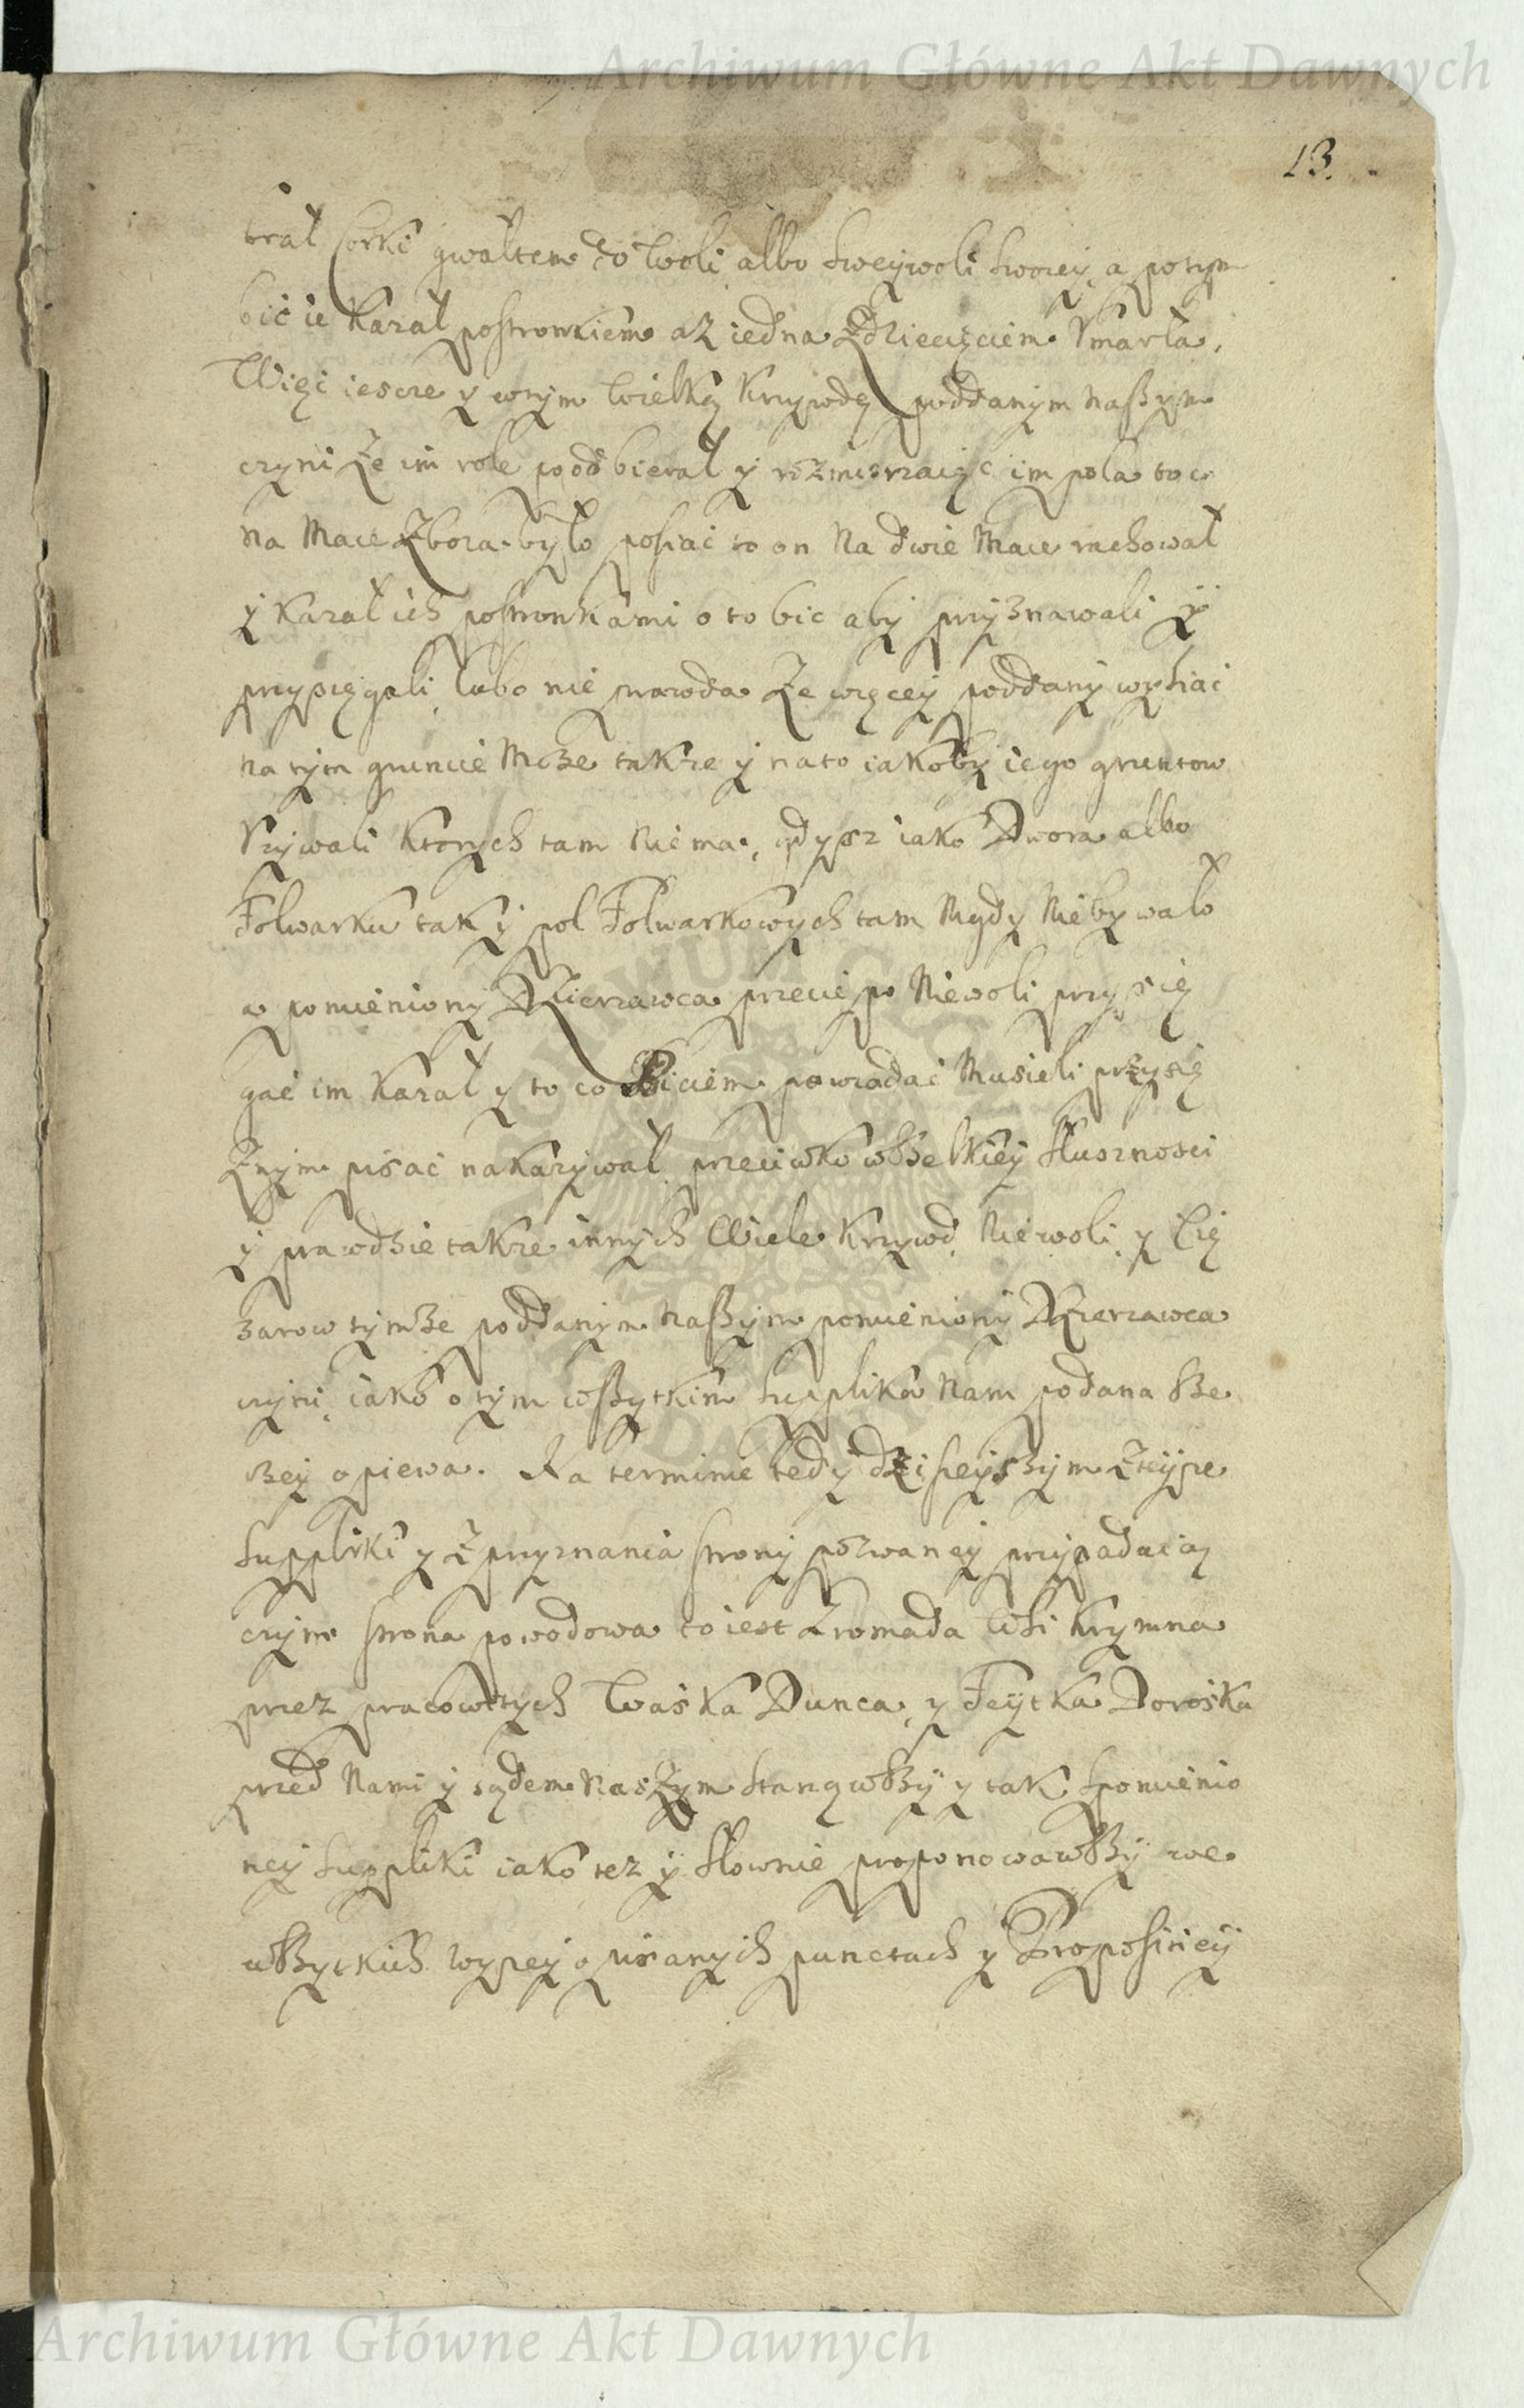 Archiwum Główne Akt Dawnych
13.
brał Corki gwałtem do Woli albo Sweywoli Swoiey, a potym
bić ie Kazał postronkiem aż iedna Zdziecięciem Vmarła,
Więc iescze y wtym Wielką Krzywdę poddanym naszym
czyni Że im role poodbierał y rozmierzaiąc im pola to co
na Mace Zboza było posiać to on Na dwie Mace rachował
y Kazał ich postronkami o to bic aby przyznawali y
przysięgali, lubo nie prawda Ze więcey poddany wysiać
na tym gruncie Może takze y na to iakoby iego gruntow
Vzywali Ktorych tam Nie ma, gdysz iako Dwora albo
Folwarku tak y pol Folwarkowych tam Nigdy Niebywało
a pomieniony Dzierzawca przecie po Niewoli przysię
gać im Kazał y to co Biciem powiadać Musieli przysię
Znym pisać nakazywał, przeciwko wszelkiey Słusznosci
y prawdzie takze innych Wiele Krzywd, Niewoli, y Cię
zarow tymze poddanym naszym pomieniony Dzierzawca
czyni, iako o tym wszytkim Supplika Nam podana sze
rzey opiewa. Na terminie tedy dzisieyszym Zteyze
Suppliki y Zprzyznania strony pozwaney przypadaiąc
czym strona powodowa to iest Gromada Wsi Krymna
przez pracowitych Waśka Dunca, y Feytka Doroska
przed Nami y sądem Naszym Stanąwszy y tak Spomienio
ney Suppliki iako tez y Słownie proponowawszy we
wszytkich wyzey opisanych punctach y Propositiey
Archiwum Główne Akt Dawnych